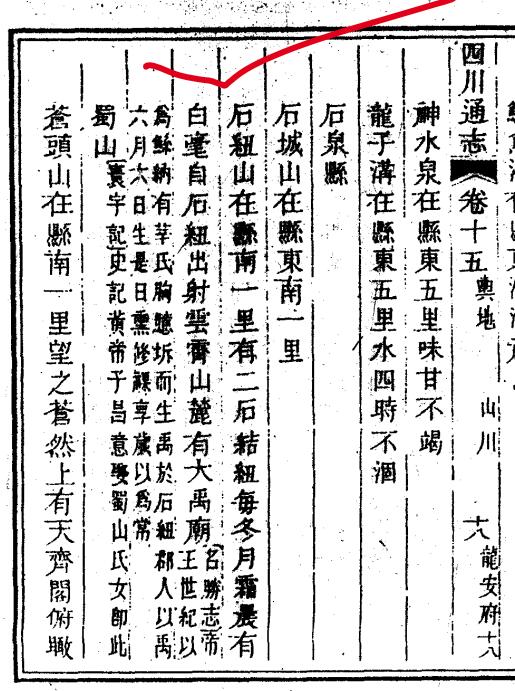 四川通志 卷十五 輿地 山川 十八 龍安府十八
神水泉在縣東五里味甘不竭
龍子溝在縣東五里水四時不涸
石泉縣
石城山在縣東南一里
石紐山在縣南一里有二石結紐每冬月霜晨有
白毫自石紐出射雲霄山麓有大禹廟
名勝志帝
王世紀以
爲鯀納有莘氏胸臆坼而生禹於石紐郡人以禹
六月六日生是日熏修祼享歲以爲常
蜀山
寰宇記史記黃帝子昌意娶蜀山氏女即此
蒼頭山在縣南一里望之蒼然上有天齊閣俯瞰